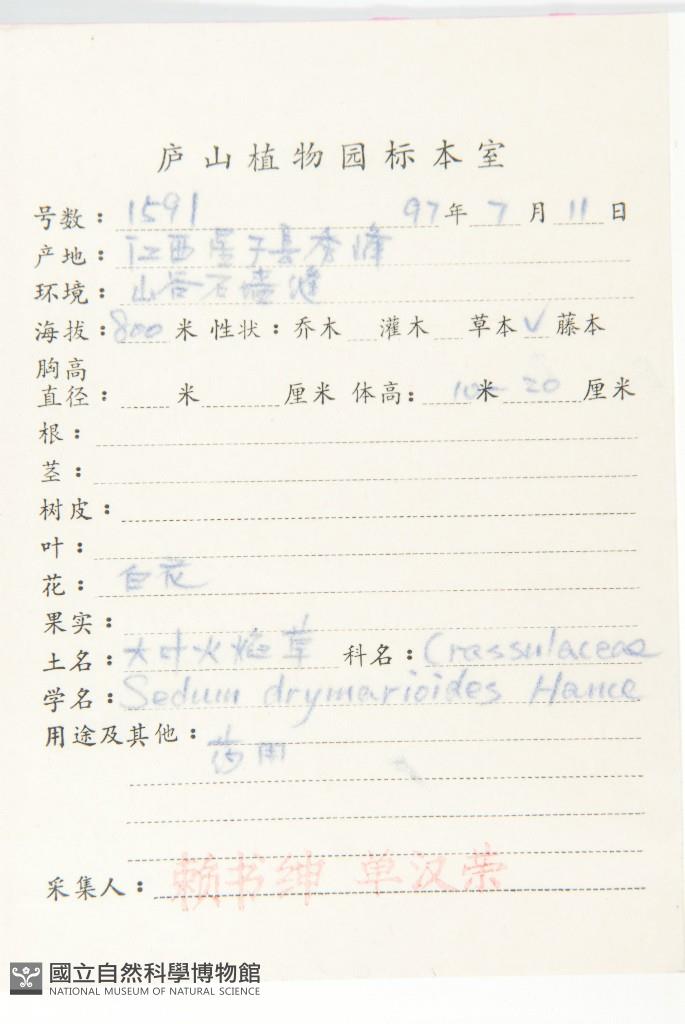 庐山植物园标本室
号数：1591 97年7月11日
产地：江西星子县秀峰
环境：山谷石墙缝
海拔：800米 性状：乔木 灌木 草本√ 藤本
胸高
直径： 米 厘米 体高： 10米20 厘米
根：
茎：
树皮：
叶：
花：白花
果实：
土名：大叶火焰草 科名：Crassulaceae
学名：Sedum drymarioides Hance
用途及其他：
药用
采集人：赖书绅 单汉荣
國立自然科學博物館
NATIONAL MUSEUM OF NATURAL SCIENCE